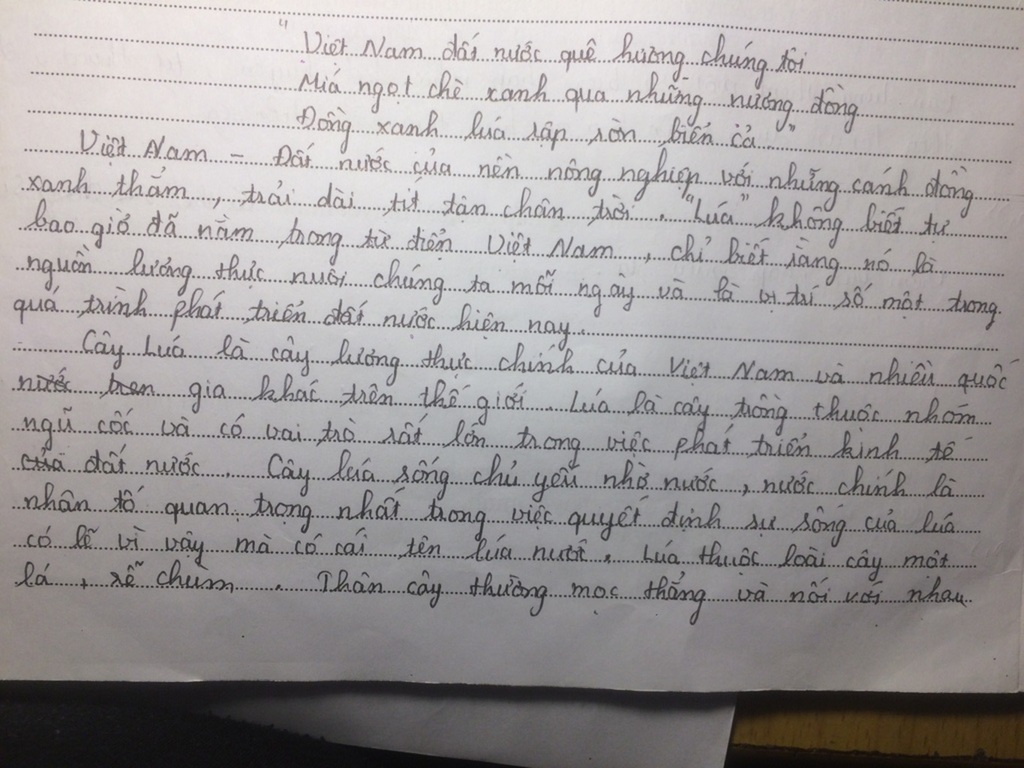 "Việt Nam đất nước quê hương chúng tôi
Miá ngọt chè xanh qua những nương đồng
Đồng xanh lúa rập rờn biển cả"
Việt Nam - Đất nước của nền nông nghiệp với những cánh đồng
xanh thẳm, trải dài tít tận chân trời. "Lúa" không biết tự
bao giờ đã nằm trong từ điển Việt Nam, chỉ biết rằng nó là
nguồn lương thực nuôi chúng ta mỗi ngày và là vị trí số một trong
quá trình phát triển đất nước hiện nay.
Cây Lúa là cây lương thực chính của Việt Nam và nhiều quốc
gia khác trên thế giới. Lúa là cây trồng thuộc nhóm
ngũ cốc và có vai trò rất lớn trong việc phát triển kinh tế
của đất nước. Cây lúa sống chủ yếu nhờ nước, nước chính là
nhân tố quan trọng nhất trong việc quyết định sự sống của lúa
có lẽ vì vậy mà có cái tên lúa nước. Lúa thuộc loài cây một
lá, rễ chum. Thân cây thường mọc thẳng và nối với nhau